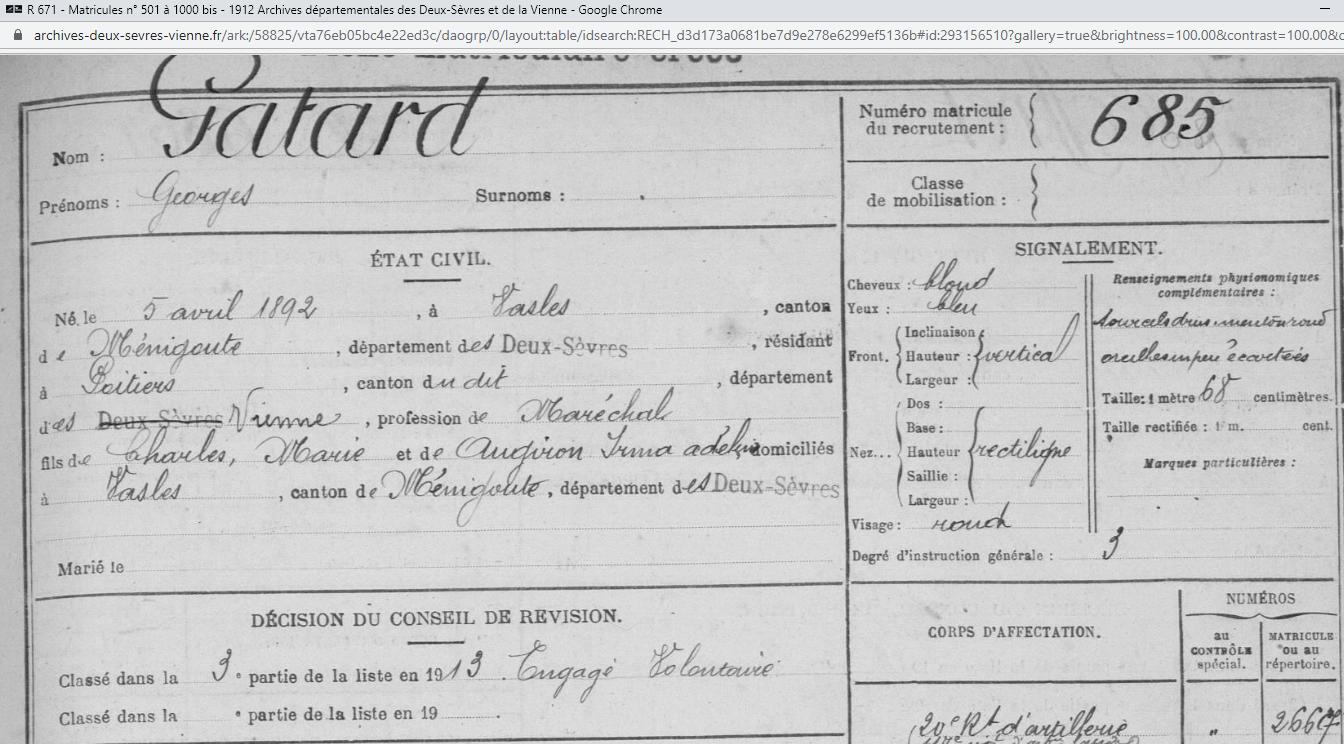 R 671 - Matricules n° 501 à 1000 bis - 1912 Archives départementales des Deux-Sèvres et de la Vienne - Google Chrome
archives-deux-sevres-vienne.fr/ark:/58825/vta76eb05bc4e22ed3c/daogrp/0/layout:table/idsearch:RECH_d3d173a0681be7d9e278e6299ef5136b#id:293156510?gallery=true&brightness=100.00&contrast=100.00&c
Nom : Gatard
Prénoms : Georges Surnoms :
Numéro matricule
du recrutement : 685
Classe
de mobilisation :
ÉTAT CIVIL.
Né le 5 avril 1892, à Vasles, canton
de Ménigoute, département des Deux-Sèvres, résidant
à Poitiers, canton du dit, département
des Deux-Sèvres Vienne, profession de Maréchal
fils de Charles, Marie et de Augiron Irma domiciliés
à Vasles, canton de Ménigoute, département des Deux-Sèvres
Marié le
SIGNALEMENT.
Cheveux : blond
Yeux : bleu
Front. Inclinaison :
Hauteur : vertical
Largeur :
Nez... Dos :
Base :
Hauteur rectiligne
Saillie :
Largeur :
Visage : rond
Degré d'instruction générale : 3
Renseignements physionomiques
complémentaires :
sourcils drus menton rond
oreilles un peu écartées
Taille: 1 mètre 68 centimètres.
Taille rectifiée : 1 m. cent.
Marques particulières :
DÉCISION DU CONSEIL DE REVISION.
Classé dans la 3e partie de la liste en 1913. Engagé Volontaire
Classé dans la e partie de la liste en 19 .
CORPS D'AFFECTATION.
NUMÉROS
au
CONTRÔLE
spécial.
MATRICULE
ou au
répertoire.
20e Rt d'artillerie "